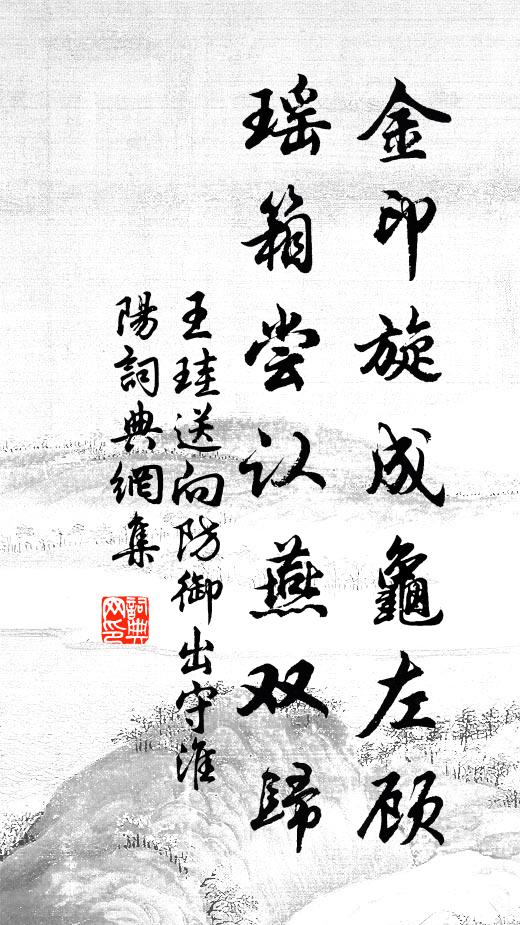 金印旋成龜左顾
瑶箱尝认燕双歸
王珪送向防御出守淮
陽詞典網集
詞典